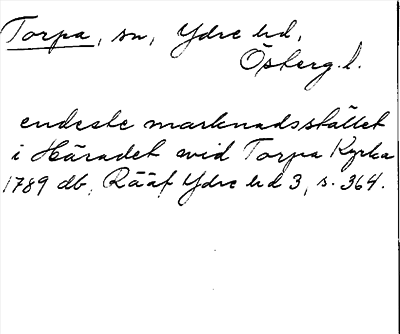 Torpa, sn, Ydre hd,
Österg.l.
endeste marknadsstället
i Häradet wid Torpa Kyrka
1789 db, Rääf Ydre hd 3, s. 364.